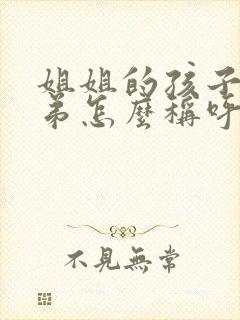 姐姐的孩子
弟怎麼稱呼
不見無常